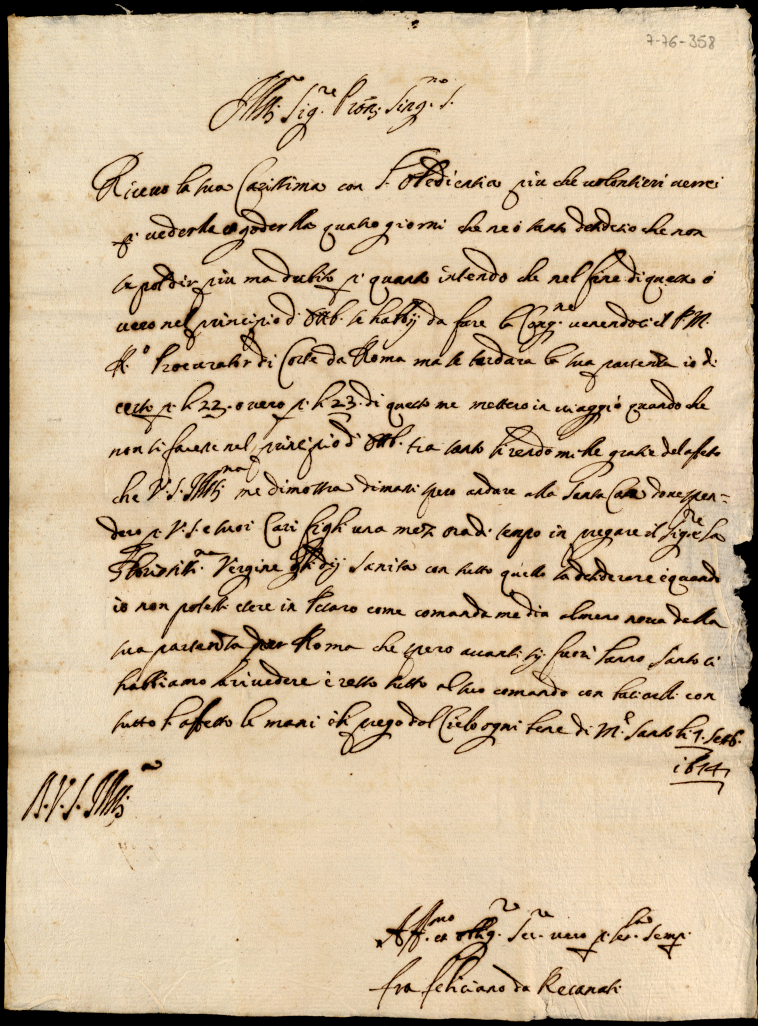 7-76-358
Ill.mo Sig.re Pron. Sing.mo S.
Ricevo la sua Carissima con l'Obedientia più che volontieri verrei
p. vederla e goderla quatro giorni che ne ò tanto desiderio che non
se pol dir più ma dubito p. quanto intendo che nel fine di questo ò
vero nel principio di Ottb. se habbij da fare la Cong.ne venendoci il P.M.
R.o Procurator di Corte da Roma ma se tardarà la sua partenza io di
certo p. li 22. o vero p. li 23. di questo me metterò in viaggio quando che
non si facesse nel principio di Ottb. tra tanto li rendo mille gratie del afetto
che V.S. Ill.ma me dimostra dimani spero andare alla Santa Casa dove spen=
derò p. V.S. e suoi Cari figli una mez ora di tempo in pregare il Sig.re e la
Vergine gli dij Sanità con tutto quello sa desiderare e quando
io non potessi esere in Pesaro come comanda me dia almeno nova della
sua partenza per Roma che spero avanti sij fuori l'anno Santo ci
habbiamo à rivedere e resto tutto al suo comando con baciarli con
tutto l'affetto le mani e li prego dal Cielo ogni bene di M.e Santo li 4. Settb.
1674
D.V.S. Ill.ma
Aff.mo et Obbg.o Ser.re vero p. ser.la semp.
fra feliciano da Recanati